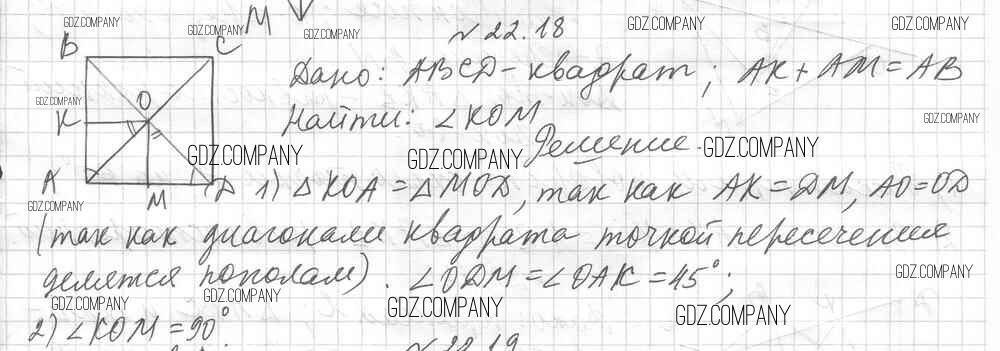 GDZ.COMPANY
М
GDZ.COMPANY
№ 22.18
GDZ.COMPANY
GDZ.COMPANY
B C
Дано: ABCD - квадрат; AK + AM = AB
GDZ.COMPANY
K O
Найти: ∠KOM
GDZ.COMPANY
Решение.
GDZ.COMPANY
GDZ.COMPANY
GDZ.COMPANY
A M D
1) △KOA = △MOD, так как AK = DM, AO = OD
GDZ.COMPANY
(так как диагонали квадрата точкой пересечения
делятся пополам). ∠ODM = ∠OAK = 45°;
GDZ.COMPANY
GDZ.COMPANY
GDZ.COMPANY
GDZ.COMPANY
GDZ.COMPANY
2) ∠KOM = 90°